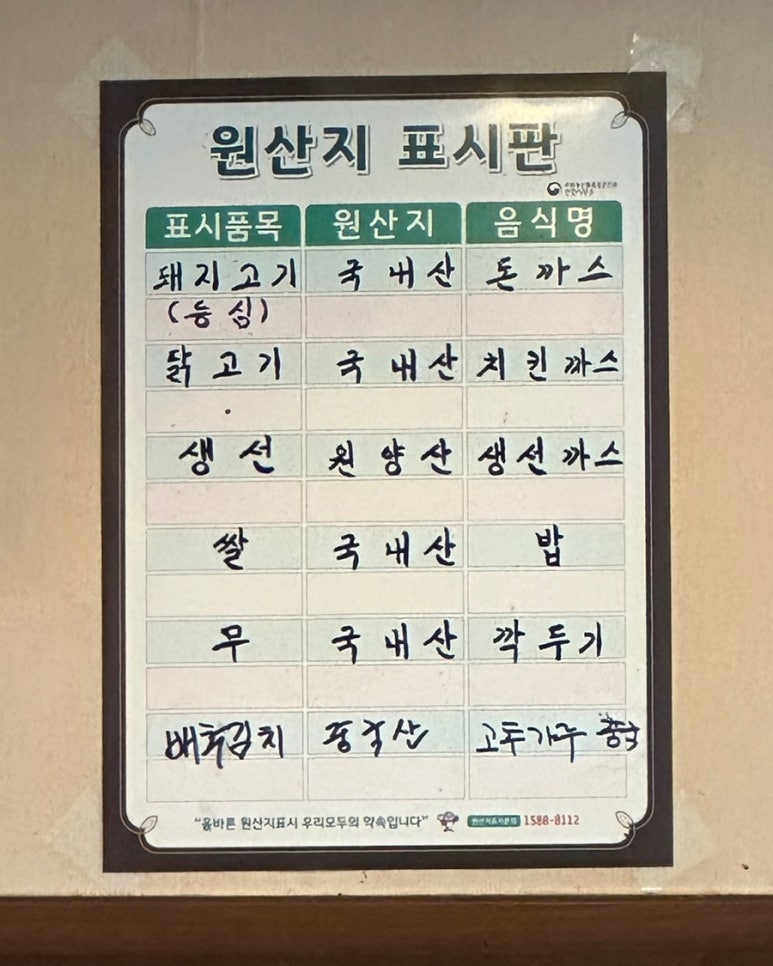 원산지 표시판
표시품목 원산지 음식명
돼지고기 국내산 돈까스
(등심)
닭고기 국내산 치킨까스
생선 원양산 생선까스
쌀 국내산 밥
무 국내산 깍두기
배추김치 중국산 고추가루 중국
"올바른 원산지표시 우리모두의 약속입니다" 1588-8112